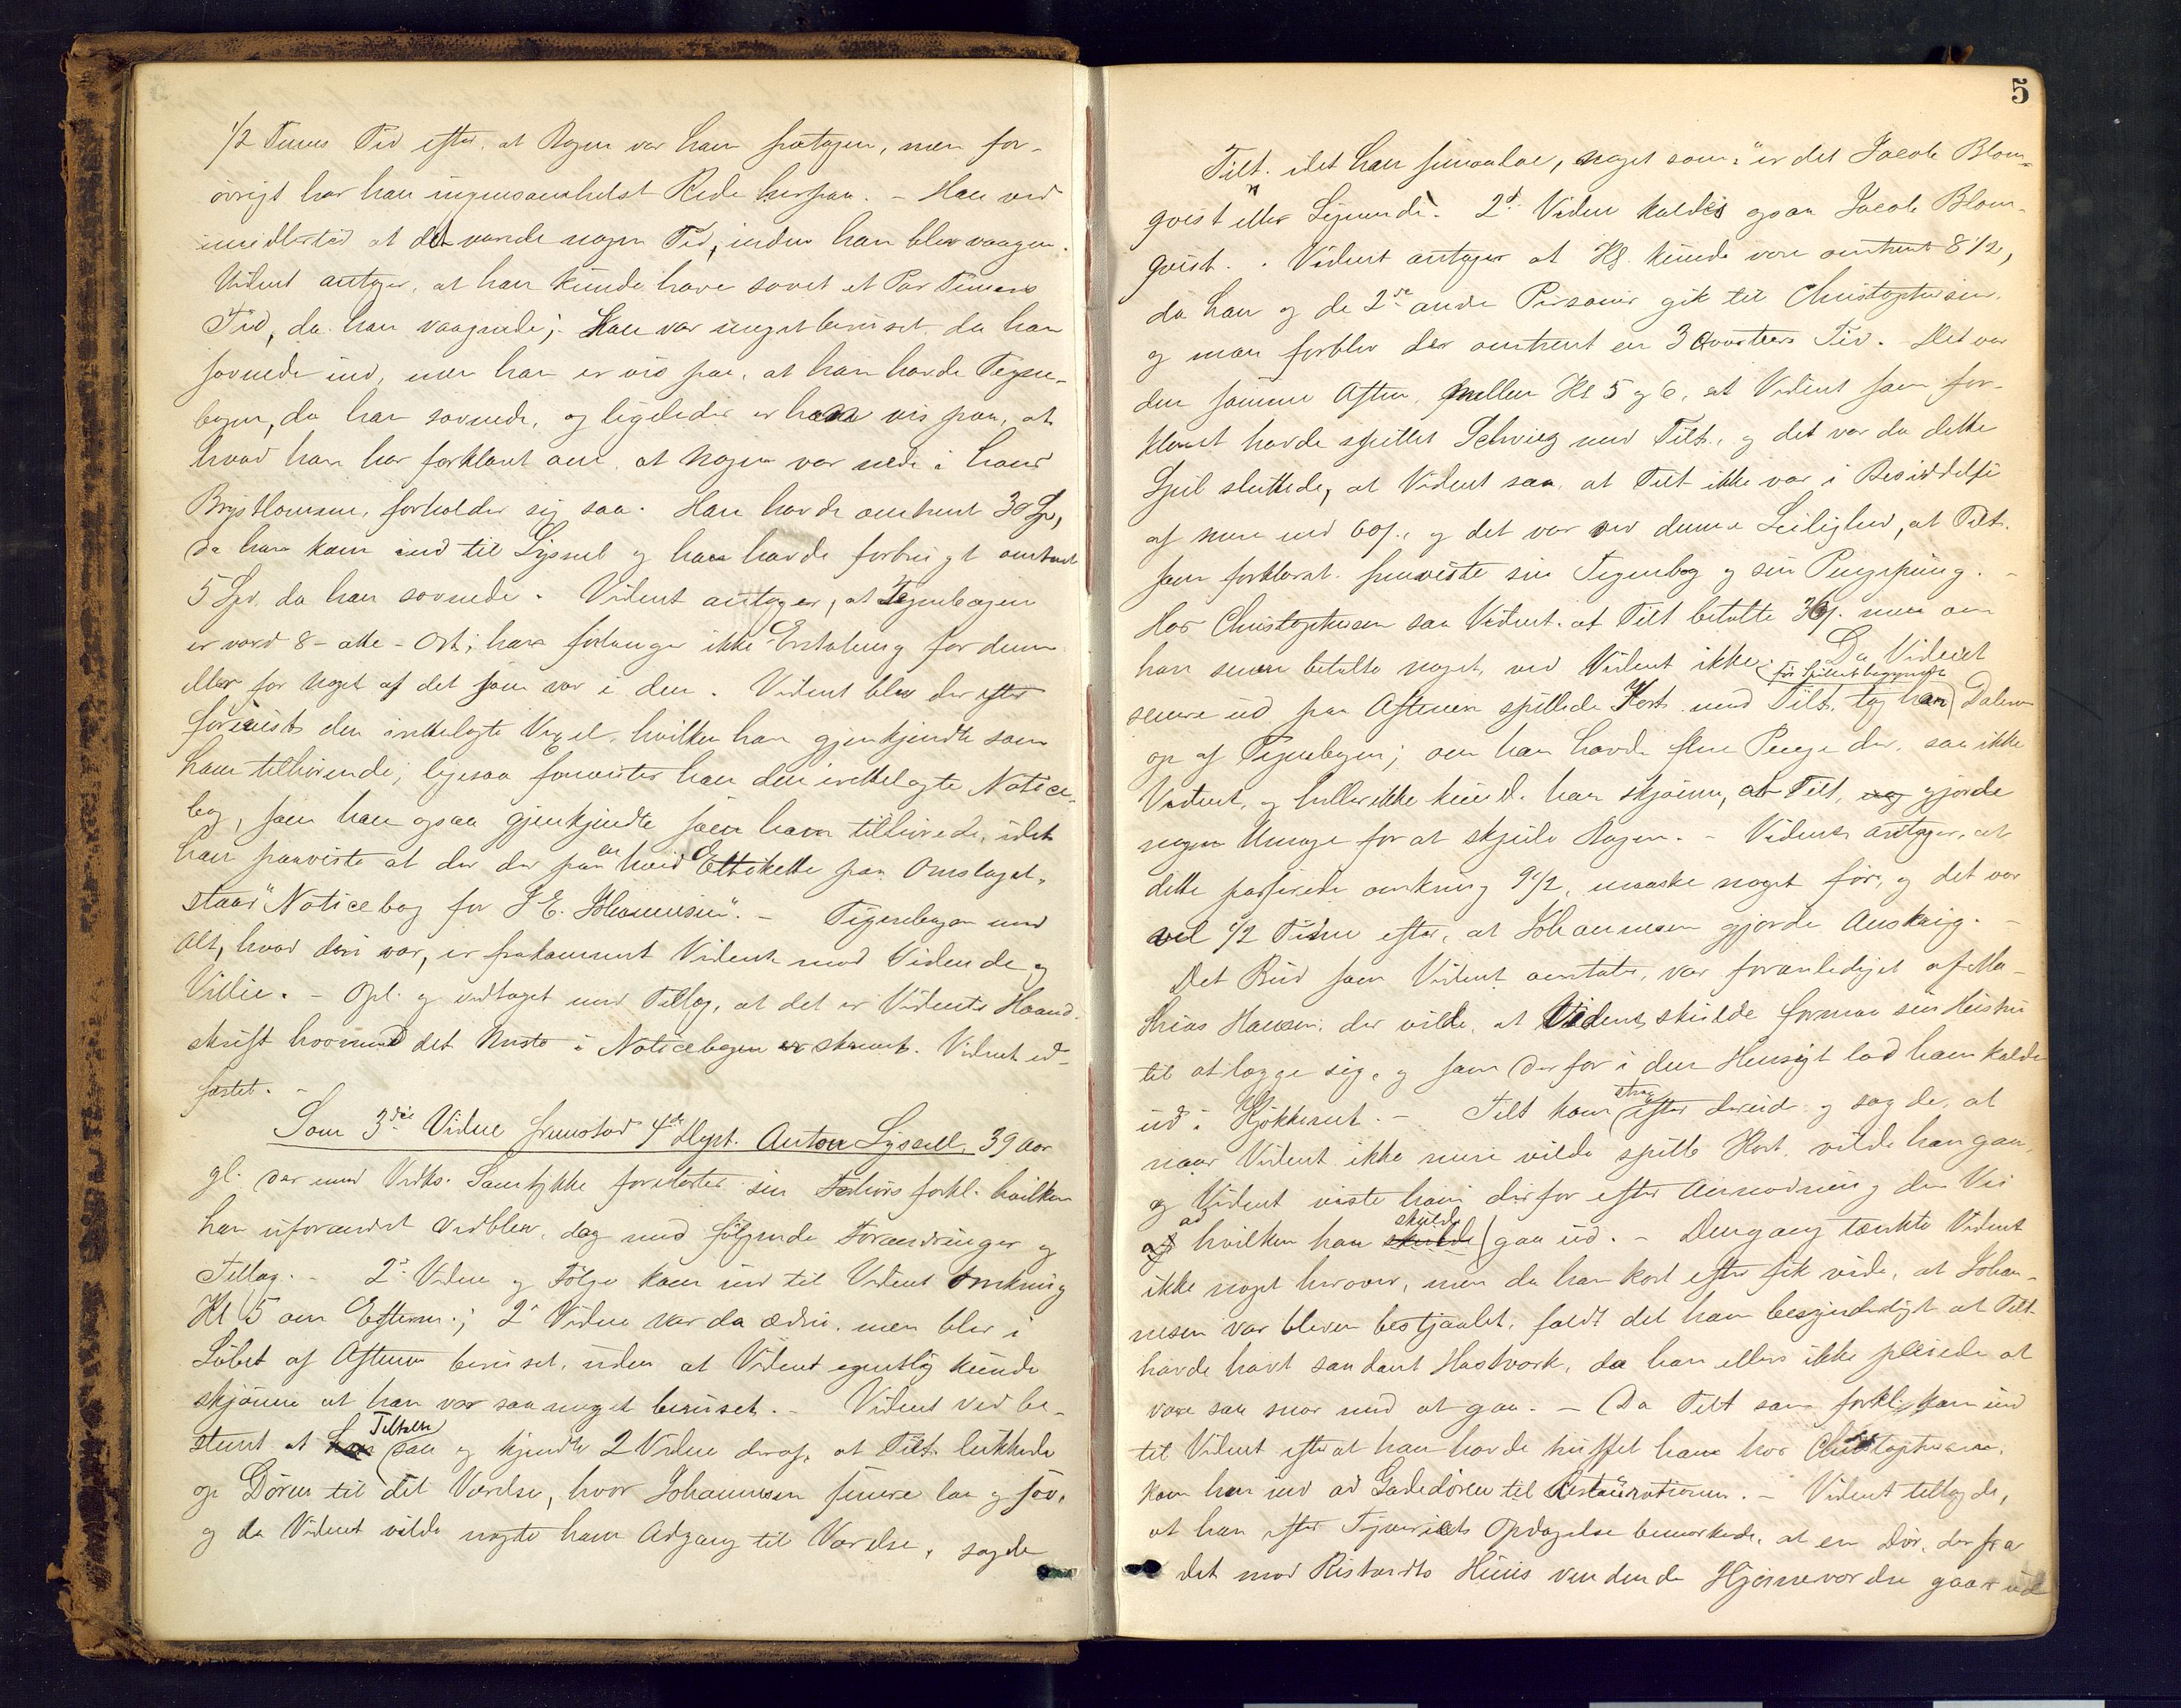 1/2 Times Tid efter, at Bogen var ham fratagen, men for-
övrigt har han ingensomhelst Rede herpaa. - Han ved
imidlertid at det varede nogen Tid, inden han blev vaagen.
Vidnet antager, at han kunde have sovet et Par Timers
Tid, da han vaagnede; Han var meget beruset, da han
sovnede ind, men han er vis paa, at han havde Tegne-
bogen, da han sovnede, og ligeledes er han vis paa, at
hvad han har forklaret om, at Bogen var nede i hans
Brystlomme, forholder sig saa. Han havde omtrent 30 Spd,
da han kom ind til Lyssell og han havde forbrugt omtrent
5 Spd. da han sovnede. Vidnet antager, at Tegnebogen
er værd 8 - otte - Ort; han forlanger ikke Erstatning for denne
eller for noget af det som var i den. Vidnet blev derefter
forevist den irettelagte Vexel, hvilken han gjenkjendte som
ham tilhörende; ligesaa forevistes ham den irettelagte Notice-
bog, som han ogsaa gjenkjendte som ham tilhörende, idet
han paaviste at der der paa en hvid Ettikette paa Omslaget,
staar "Noticebog for J. E. Johannesen". - Tegnebogen med
Alt, hvad deri var, er frakommet Vidnet mod Vidende og
Villie. - Opl. og vedtaget med Tillæg, at det er Vidnets Haand-
skrift hvormed det Meste i Noticebogen er skrevet. Vidnet ed-
fæstet. -
Som 3die Vidne fremstod 4de Dept. Anton Lyssell, 39 Aar
gl. der med Vedks. Samtykke forelæstes sin Forhörsforkl. hvilken
han uforandret vedblev, dog med fölgende Forandringer og
Tillæg. - 2d Vidne og Fölge kom ind til Vidnet omkring
Kl 5 om Efterm.; 2d Vidne var da ædru, men blev i
Löbet af Aftenen beruset, uden at Vidnet egentlig kunde
skjönne at han var saa meget beruset. - Vidnet ved be-
stemt at Tiltalte saa og kjendte 2 Vidne deraf, at Tilt. lukkede
op Dören til det Værelse, hvor Johannesen senere laa og sov,
og da Vidnet vilde nægte ham Adgang til Værelse, sagde
5
Tilt. idet han smaalo, noget som: "er det Jacob Blom-
qvist eller Lensmand". 2d Vidne kaldes ogsaa Jacob Blom-
qvist. - Vidnet antager at Kl. kunde være omtrent 8 1/2,
da han og de 2de andre Personer gik til Christophersen,
og man forblev der omtrent en 3 Qvarters Tid. Det var
den samme Aften, mellem Kl 5 og 6, at Vidnet som for-
klaret havde spillet Schvieg med Tilt., og det var da dette
Spil sluttede, at Vidnet saa, at Tilt ikke var i Besiddelse
af mere end 60 s., og det var ved denne Leilighed, at Tilt.
som forklaret fremviste sin Tegnebog og sin Pengepung. -
Hos Christophersen saa Vidnet, at Tilt betalte 36 s. men om
han senere betalte noget, ved Vidnet ikke. Da Vidnet
senere ud paa Aftenen spillede Kort med Tilt, tog han för Spillet begyndte Daleren
op af Tegnebogen; om han havde flere Penge der, saa ikke
Vidnet, og heller ikke kunde han skjönne, at Tilt, gjorde
nogen Umage for at skjule Bogen. - Vidnet antager, at
dette passerede omkring 9 1/2, maaske noget för, og det var
vel 1/2 Time efter, at Johannesen gjorde Anskrig. -
Det Bud som Vidnet omtaler, var foranlediget af Ma-
thias Hansen, der vilde, at Vidnet skulde formaa sin Hustru
til at lægge sig, og som derfor i den Hensigt lod ham kalde
ud i Kjökkenet. - Tilt kom strax efter derud og sagde, at
naar Vidnet ikke mere vilde spille Kort, vilde han gaa,
og Vidnet viste ham derfor efter Anmodning den Vei
ad hvilken han skulde gaa ud. - Dengang tænkte Vidnet
ikke noget herover, men da han kort efter fik vide, at Johan-
nesen var bleven bestjaalet, faldt det ham besynderligt at Tilt
havde havt saadant Hastværk, da han ellers ikke pleiede at
være saa snar med at gaa. - Da Tilt som forkl. kom ind
til Vidnet efter at han havde truffet ham hos Christophersen,
kom han ind ad Gadedören til Restaurationen. - Vidnet tillagde,
at han efter Tyveriets Opdagelse bemærkede, at en Dör, der fra
det mod Ristvedts Huus vendende Hjörneværelse gaar ud